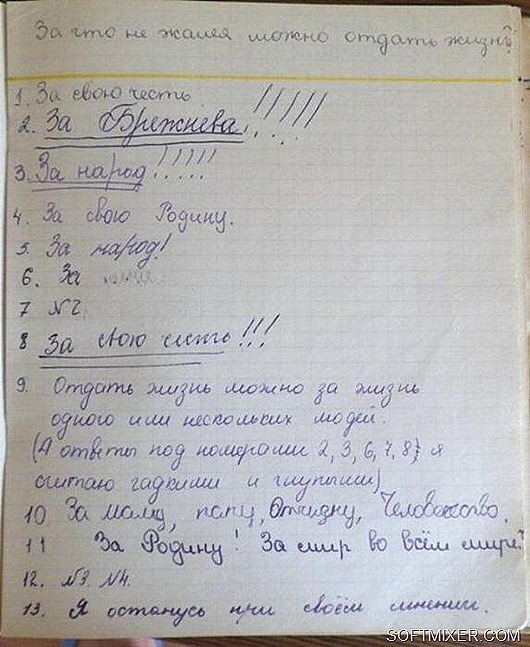 За что не жалея можно отдать жизнь
1. За свою честь
2. За Брежнева!!!!!
3. За народ!!!!!
4. За свою Родину.
5. За народ!
6. За
7 №2
8 За свою честь!!!
9. Отдать жизнь можно за жизнь
одного или нескольких людей.
(А ответы под номерами 2, 3, 6, 7, 8, я
считаю гадкими и глупыми)
10 За маму, папу, Отчизну, Человечество.
11 За Родину! За мир во всём мире!
12. №9. №4.
13. Я останусь при своём мнении.
SOFTMIXER.COM